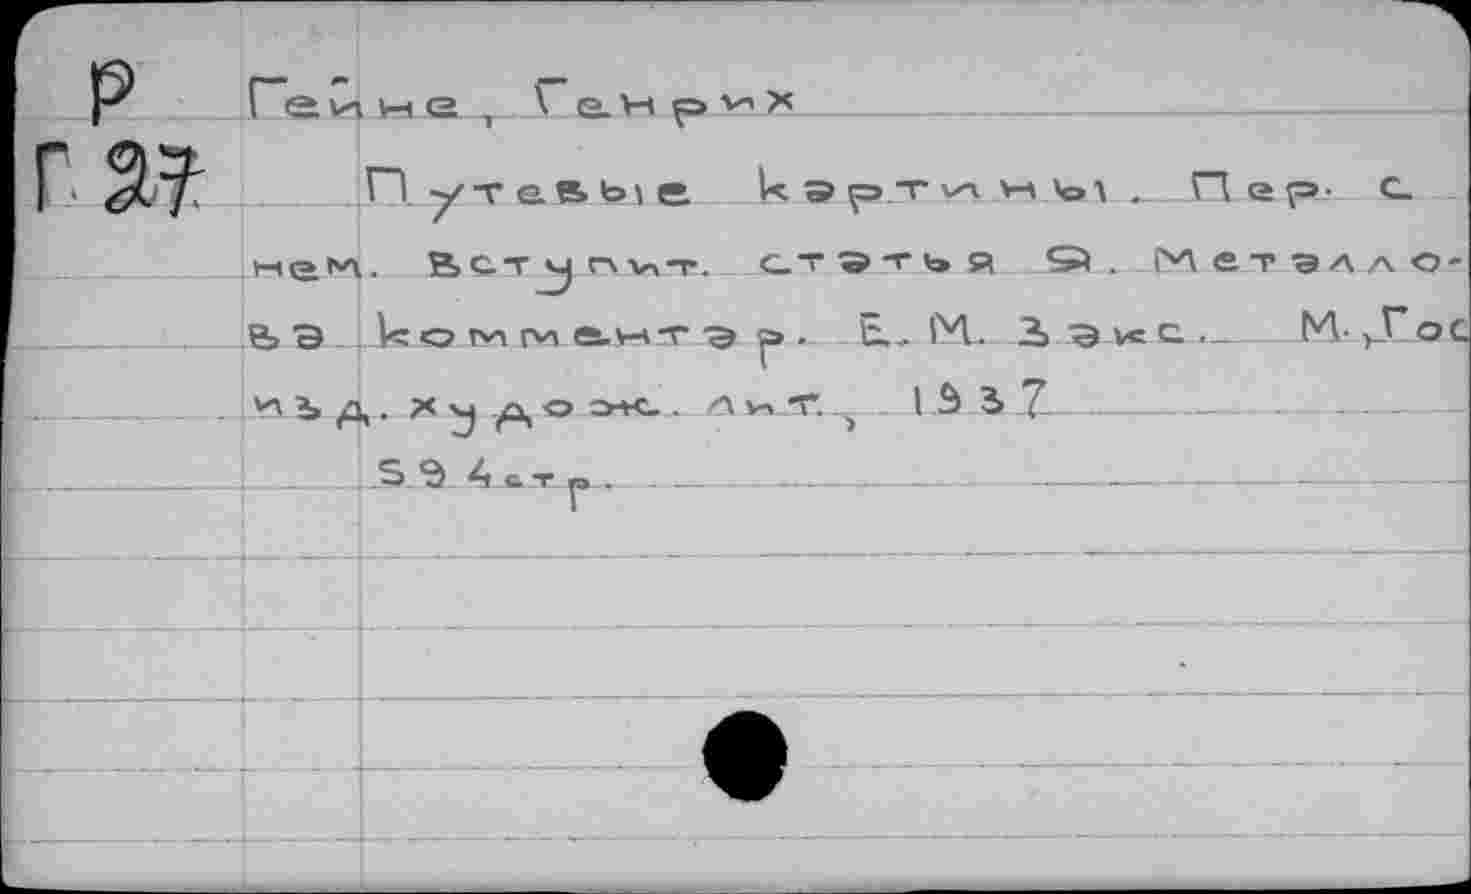 Р
Г 27
Гейне, Генрих
Путевые картины. Пер. с
нем. Вступит. статья Я. Металло-
ва Комментар. Е. М. Закс. М., Гос
изд. худож. лит., 1937
594 стр.